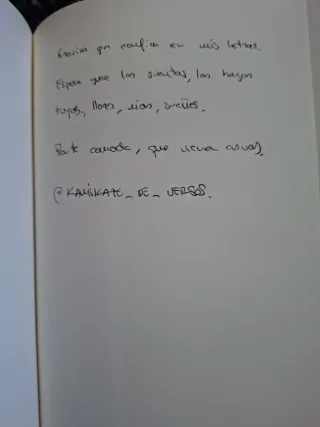 Gracias por confiar en mis letras.
Espero que las sientas, las hagas
tuyas, llores, rías, sueñes.
Ponte cómoda, que vienen curvas.
@KAMIKAZE_DE_VERSOS.